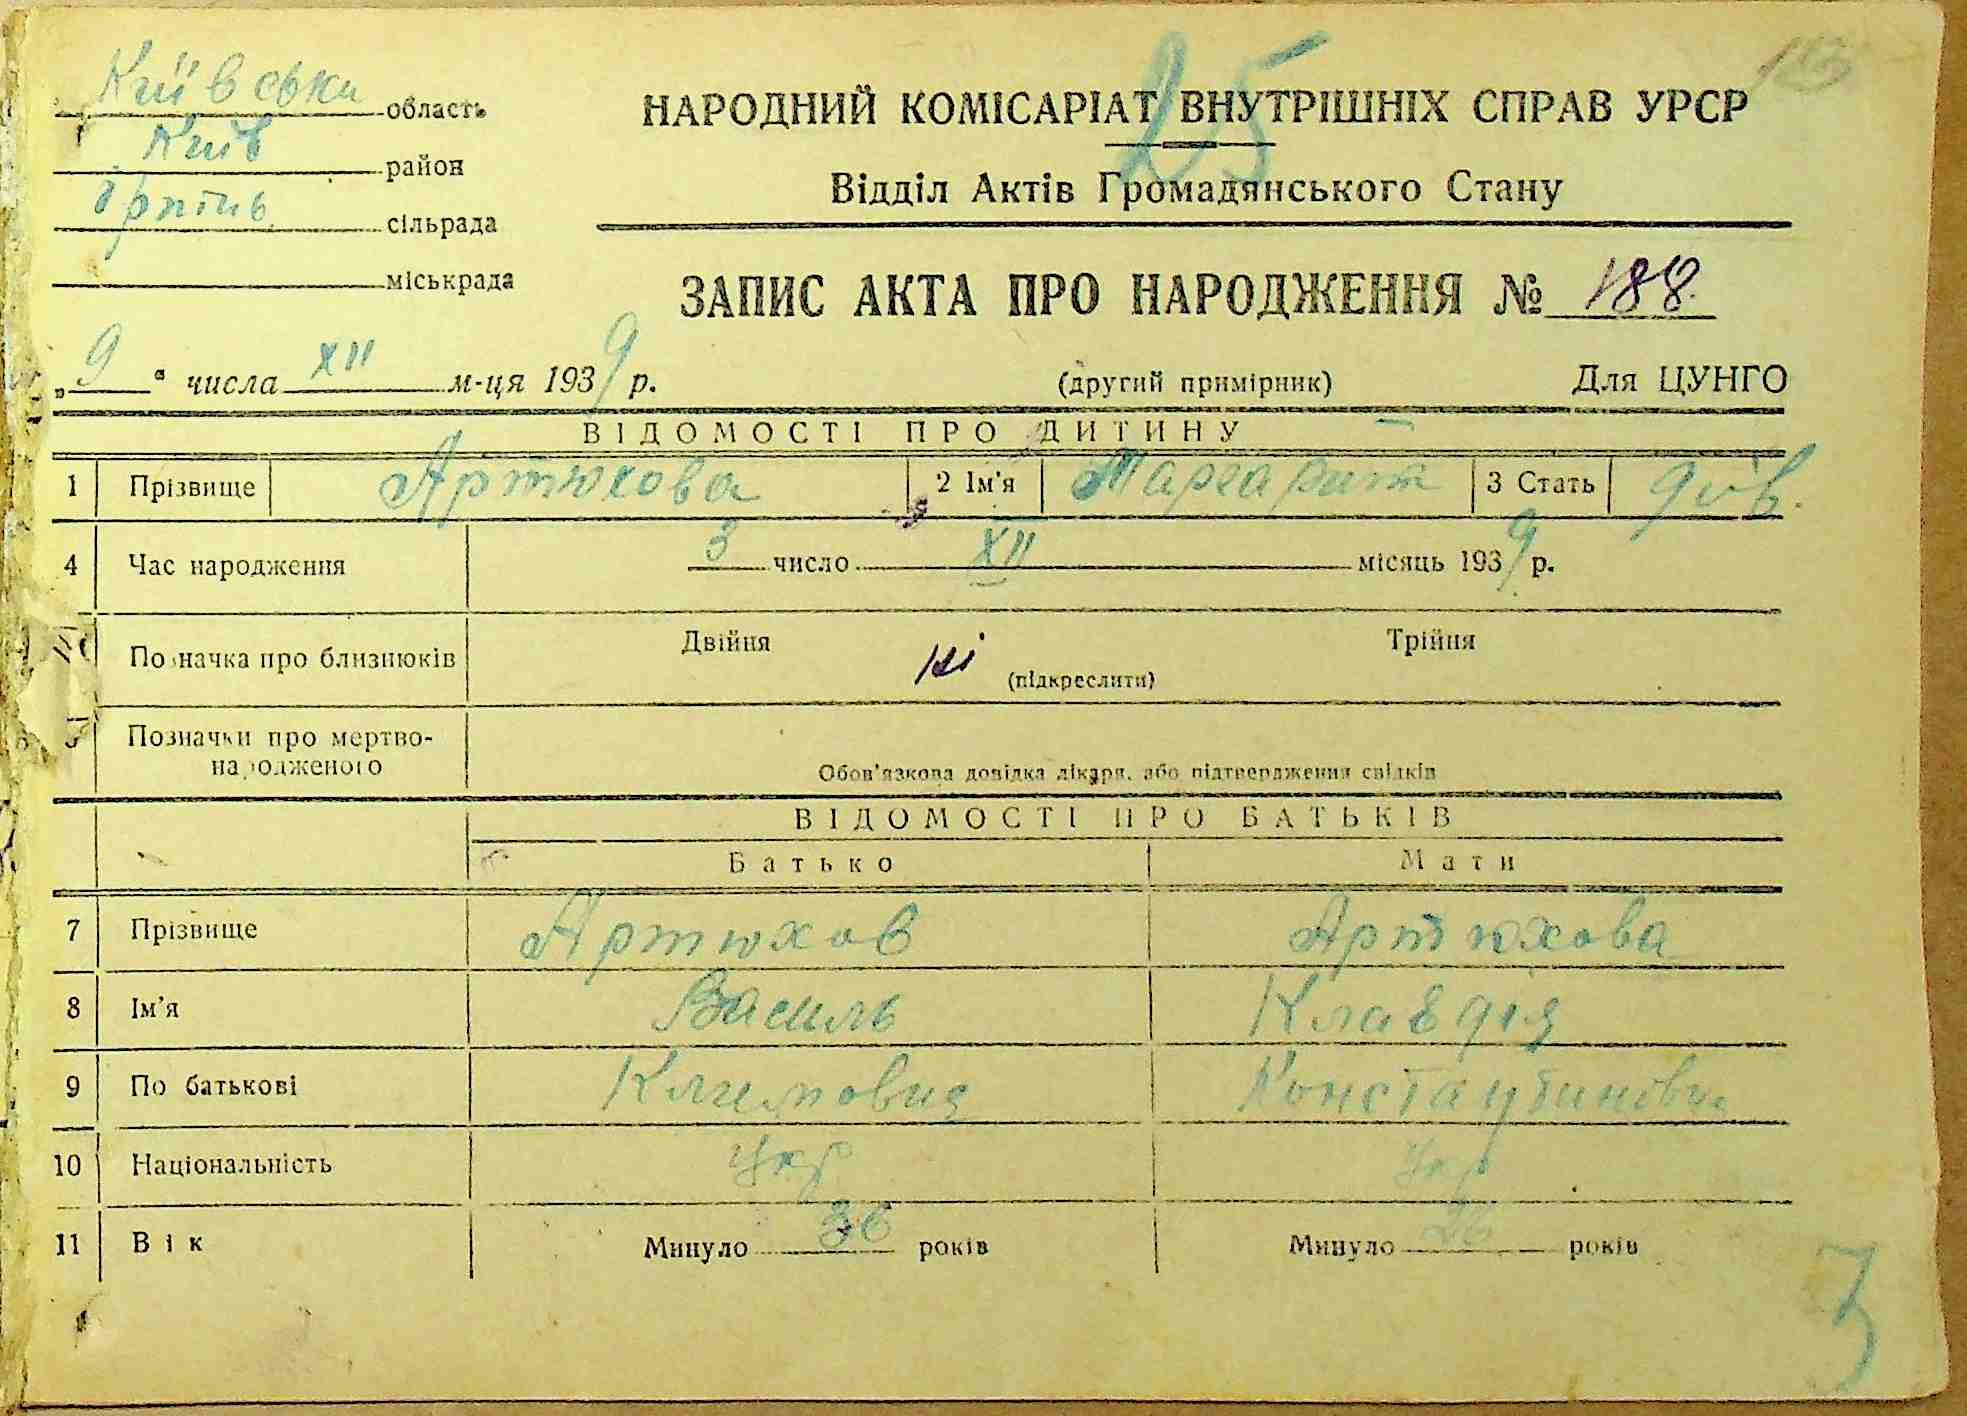 Київська область
Київ район
Ірпінь сільрада
міськрада
25
НАРОДНИЙ КОМІСАРІАТ ВНУТРІШНІХ СПРАВ УРСР
Відділ Актів Громадянського Стану
ЗАПИС АКТА ПРО НАРОДЖЕННЯ № 188.
„9“ числа XII м-ця 1939 р. (другий примірник) Для ЦУНГО
ВІДОМОСТІ ПРО ДИТИНУ
1 Прізвище Артюхова 2 Ім'я Маргарит 3 Стать дів.
4 Час народження 3 число XII місяць 1939 р.
Позначка про близнюків Двійня ні (підкреслити) Трійня
Позначки про мертво-
народженого Обов'язкова довідка лікаря, або підтвердження свідків
ВІДОМОСТІ ПРО БАТЬКІВ
Батько Мати
7 Прізвище Артюхов Артюхова
8 Ім'я Василь Клавдія
9 По батькові Климович Константинівн
10 Національність Укр Укр
11 Вік Минуло 36 років Минуло 26 років